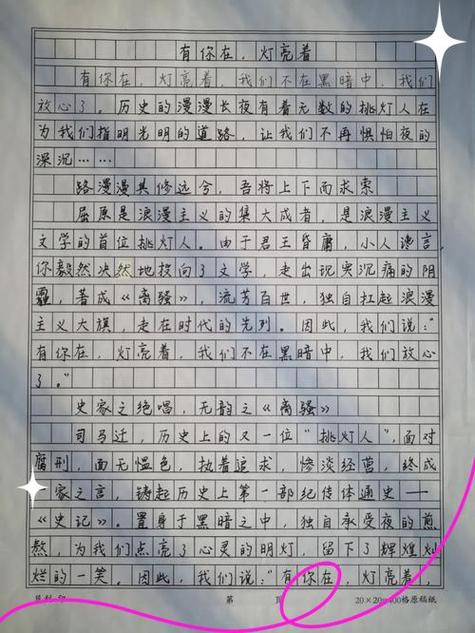 有你在，灯亮着
有你在，灯亮着，我们不在黑暗中，我们
放心了。历史的漫漫长夜有着无数的挑灯人在
为我们指明光明的道路，让我们不再惧怕夜的
深沉……
路漫漫其修远兮，吾将上下而求索
屈原是浪漫主义的集大成者，是浪漫主义
文学的首位挑灯人。由于君王昏庸，小人谗言，
你毅然决然地投向了文学，走出现实沉痛的阴
霾，著成《离骚》，流芳百世，独自扛起浪漫
主义大旗，走在时代的先列。因此，我们说："
有你在，灯亮着，我们不在黑暗中，我们放心
了。"
史家之绝唱，无韵之《离骚》
司马迁，历史上的又一位"挑灯人"，面对
腐刑，面无愠色，执着追求，惨淡经营，终成
一家之言，铸起历史上第一部纪传体通史——
《史记》。置身于黑暗之中，独自承受夜的煎
熬，为我们点亮了心灵的明灯，留下了辉煌灿
烂的一笑。因此，我们说："有你在，灯亮着，
第 页 20×20=400格原稿纸